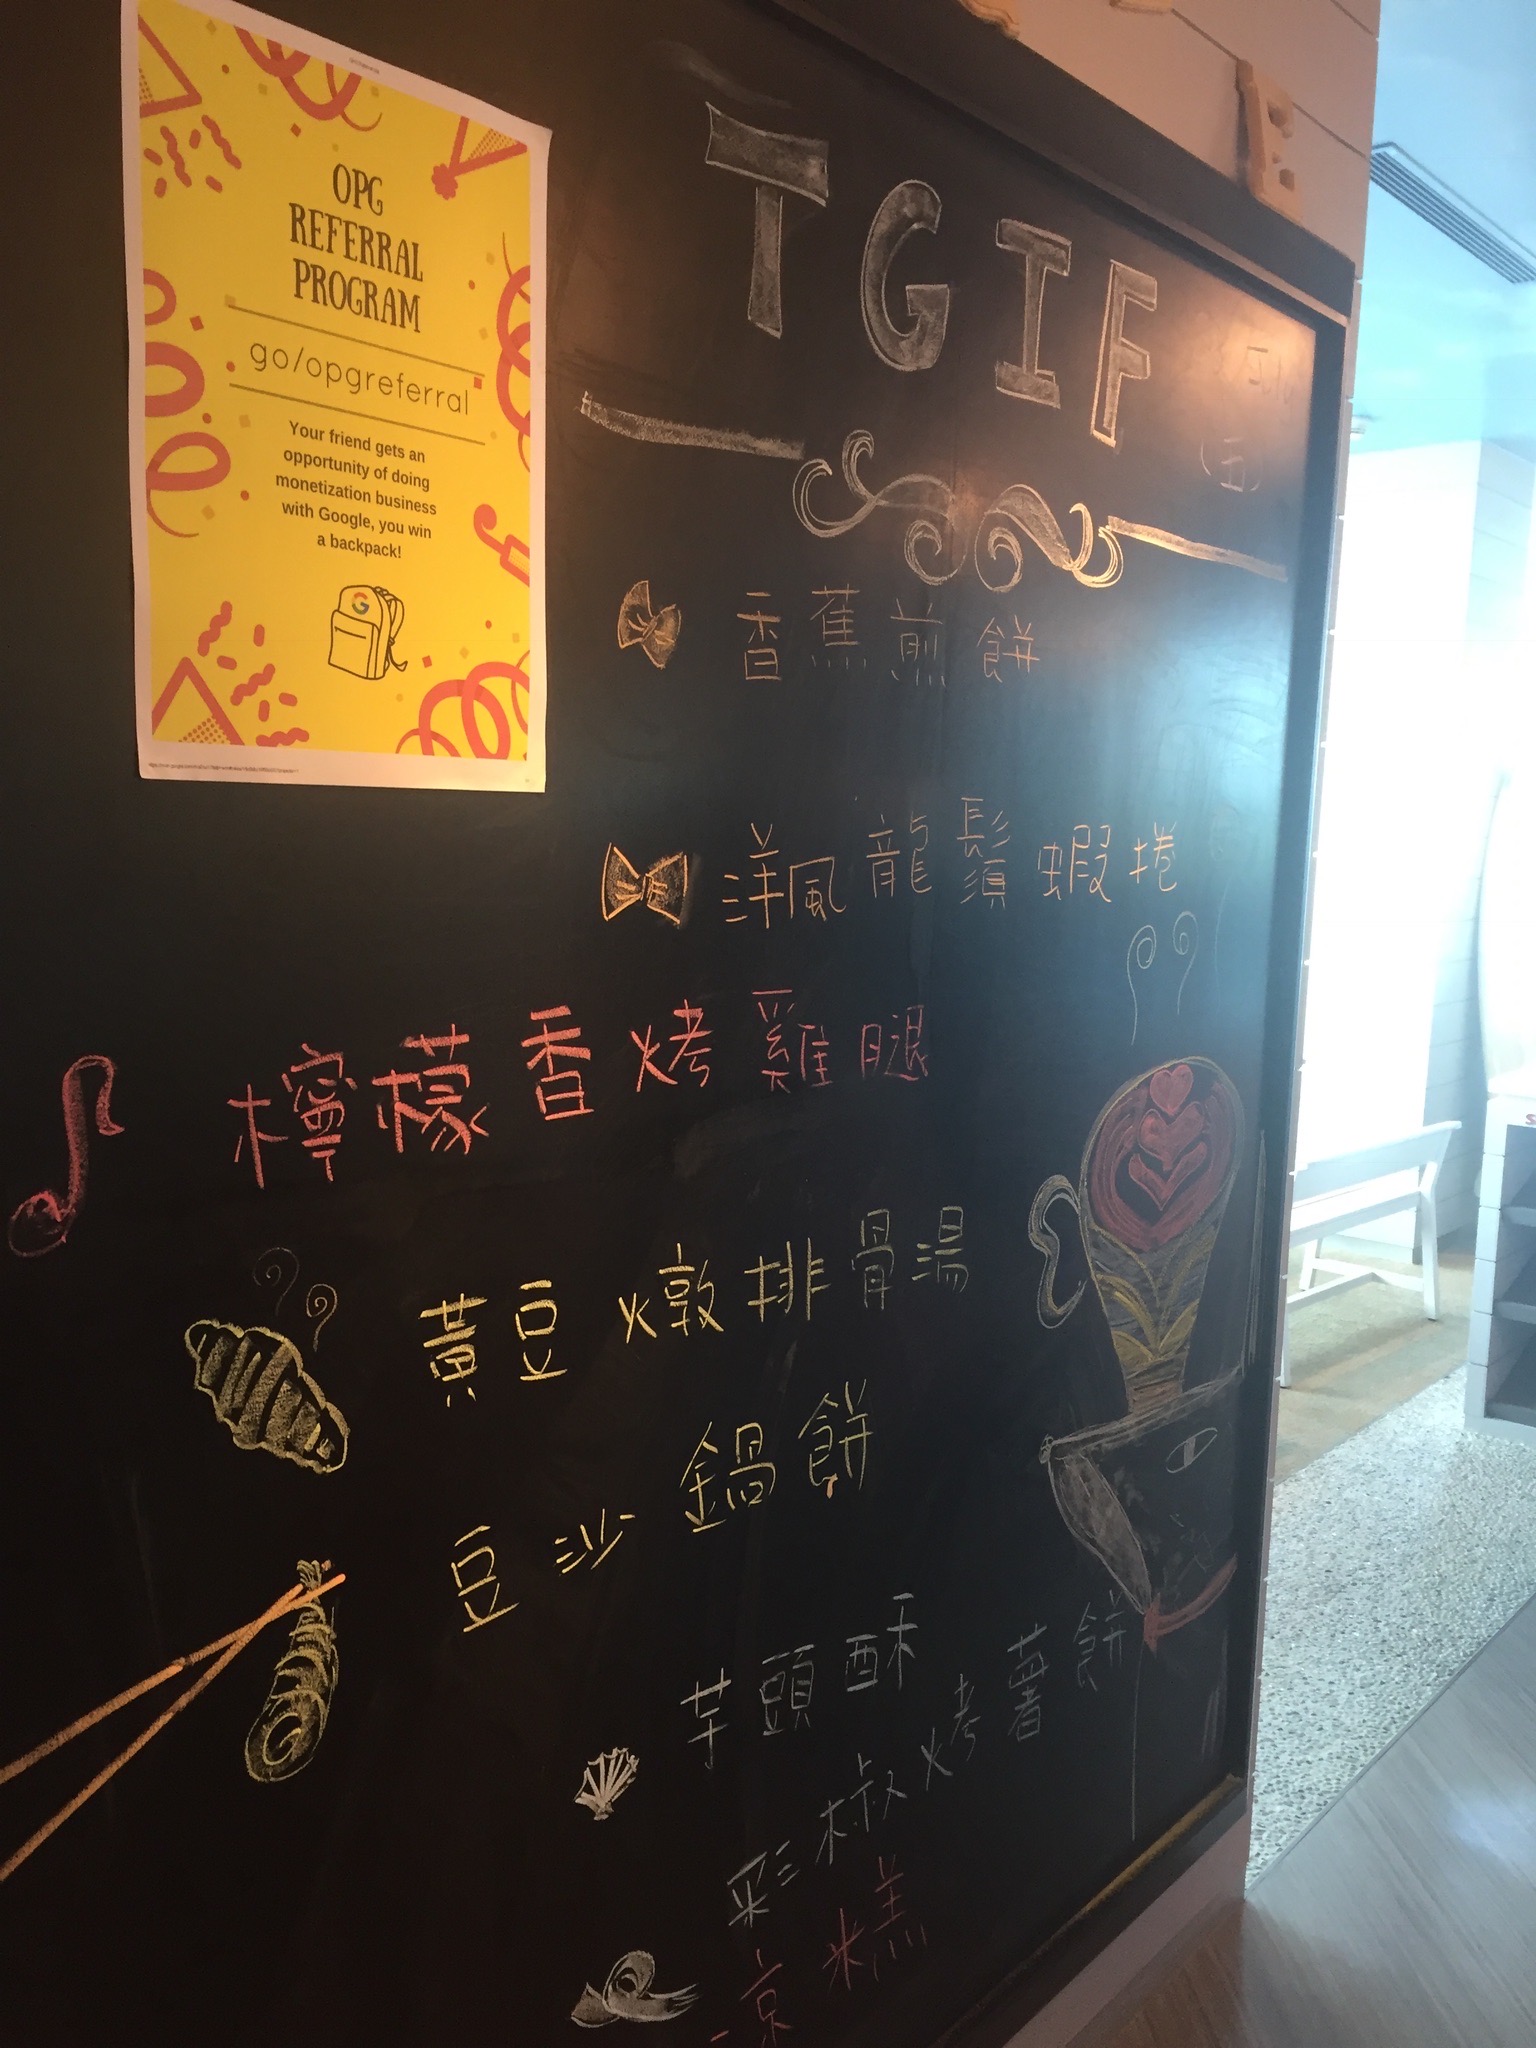 OPG
REFERRAL
PROGRAM
go/opgreferral
Your friend gets an
opportunity of doing
monetization business
with Google, you win
a backpack!
G
TGIF
(五)
香蕉煎餅
洋風龍鬚蝦捲
檸檬香烤雞腿
黃豆燉排骨湯
豆沙鍋餅
芋頭酥
彩椒烤薯餅
涼糕